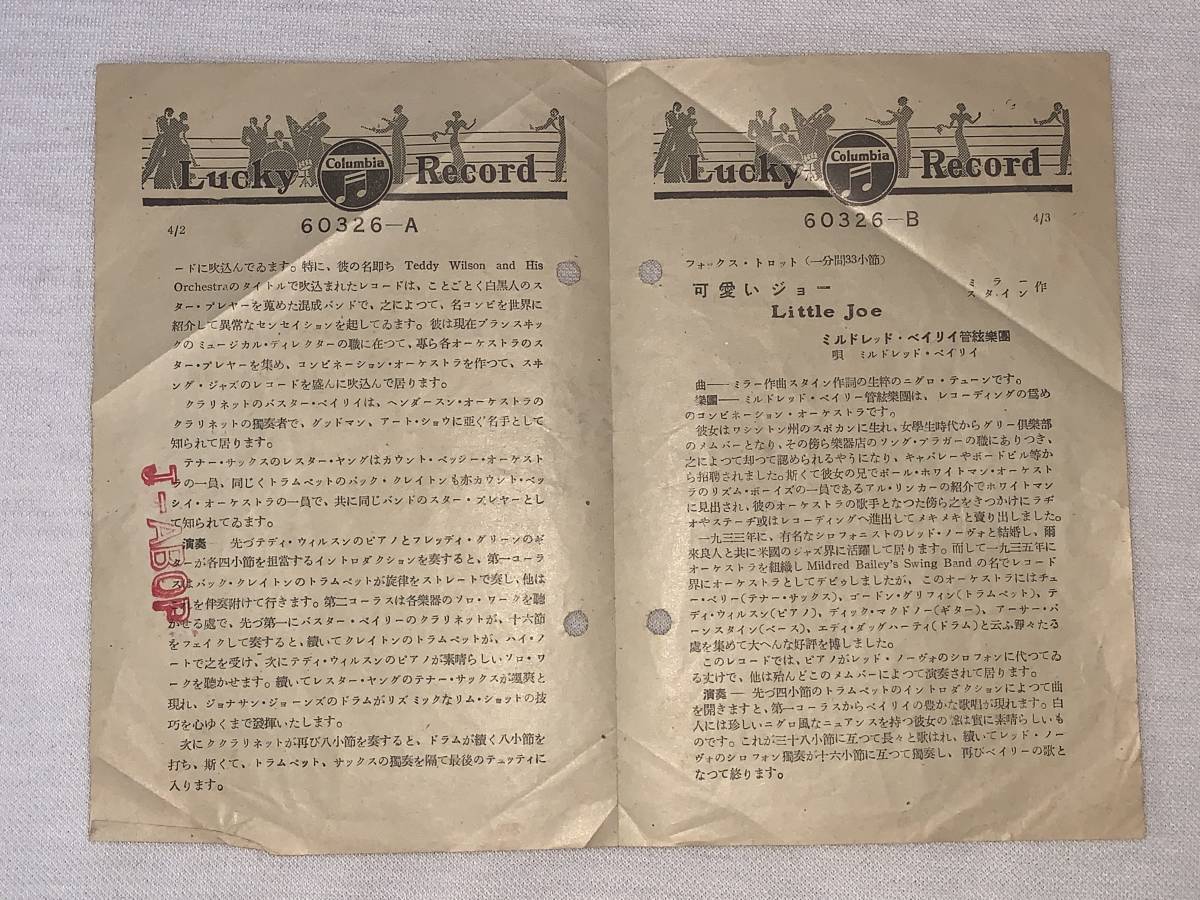 Lucky Columbia Record
60326—A
4/2
ードに吹込んでゐます。特に、彼の名即ち Teddy Wilson and His
Orchestraのタイトルで吹込まれたレコードは、ことごとく白黒人のス
ター・プレヤーを蒐めた混成バンドで、之によつて、名コンビを世界に
紹介して異常なセンセイションを起してゐます。彼は現在ブランスヰック
のミュージカル・ディレクターの職に在つて、專ら各オーケストラのス
ター・プレヤーを集め、コンビネーション・オーケストラを作つて、スヰ
ング・ジャズのレコードを盛んに吹込んで居ります。
クラリネットのバスター・ベイリイは、ヘンダースン・オーケストラの
クラリネットの獨奏者で、グッドマン、アート・ショウに亞ぐ名手として
知られて居ります。
テナー・サックスのレスター・ヤングはカウント・ベッシー・オーケスト
ラの一員、同じくトラムペットのバック・クレイトンも亦カウント・ベッ
シイ・オーケストラの一員で、共に同じバンドのスター・プレヤーとし
て知られてゐます。
演奏— 先づテディ・ウィルスンのピアノとフレッディ・グリーンのギ
ターが各四小節を担當するイントロダクションを奏すると、第一コーラ
スはバック・クレイトンのトラムペットが旋律をストレートで奏し、他は
之れを伴奏附けて行きます。第二コーラスは各樂器のソロ・ワークを聽
かせる處で、先づ第一にバスター・ベイリーのクラリネットが、十六節
をフェイクして奏すると、續いてクレイトンのトラムペットが、ハイ・ノ
ートで之を受け、次にテディ・ウィルスンのピアノが素晴らしいソロ・ワ
ークを聽かせます。續いてレスター・ヤングのテナー・サックスが颯爽と
現れ、ジョナサン・ジョーンズのドラムがリズミックなリム・ショットの技
巧を心ゆくまで發揮いたします。
次にククラリネットが再び八小節を奏すると、ドラムが續く八小節を
打ち、斯くて、トラムペット、サックスの獨奏を隔て最後のテュッティに
入ります。
J-ABOP
Lucky Columbia Record
60326—B
4/3
フォックス・トロット（一分間33小節）
可愛いジョー
Little Joe
ミラー
スタイン 作
ミルドレッド・ベイリイ管絃樂團
唄 ミルドレッド・ベイリイ
曲——ミラー作曲スタイン作詞の生粹のニグロ・テューンです。
樂團— ミルドレッド・ベイリー管絃樂團は、レコーディングの爲め
のコンビネーション・オーケストラです。
彼女はワシントン州のスポカンに生れ、女學生時代からグリー倶樂部
のメムバーとなり、その傍ら樂器店のソング・プラガーの職にありつき、
之によつて却つて認められるやうになり、キャバレーやボードビル等か
ら招聘されました。斯くて彼女の兄でポール・ホワイトマン・オーケスト
ラのリズム・ボーイズの一員であるアル・リンカーの紹介でホワイトマン
に見出され、彼のオーケストラの歌手となつた傍ら之をきつかけにラヂ
オやステーヂ或はレコーディングへ進出してメキメキと賣り出しました。
一九三三年に、有名なシロフォニストのレッド・ノーヴォと結婚し、爾
來良人と共に米國のジャズ界に活躍して居ります。而して一九三五年に
オーケストラを組織しMildred Bailey's Swing Band の名でレコード
界にオーケストラとしてデビゥしましたが、このオーケストラにはチュ
ー・ベリー(テナー・サックス)、ゴードン・グリフィン(トラムペット)、テ
ディ・ウィルスン(ピアノ)、ディック・マクドノー(ギター)、アーサー・バ
ーンスタイン(ベース)、エディ・ダッグハーティ(ドラム)と云ふ錚々たる
處を集めて大へんな好評を博しました。
このレコードでは、ピアノがレッド・ノーヴォのシロフォンに代つてゐ
る丈けで、他は殆んどこのメムバーによつて演奏されて居ります。
演奏— 先づ四小節のトラムペットのイントロダクションによつて曲
を開きますと、第一コーラスからベイリイの豊かな歌唱が現れます。白
人には珍しいニグロ風なニュアンスを持つ彼女の聲は實に素晴らしいも
のです。これが三十八小節に互つて長々と歌はれ、續いてレッド・ノー
ヴォのシロフォン獨奏が十六小節に互つて獨奏し、再びベイリーの歌と
なつて終ります。